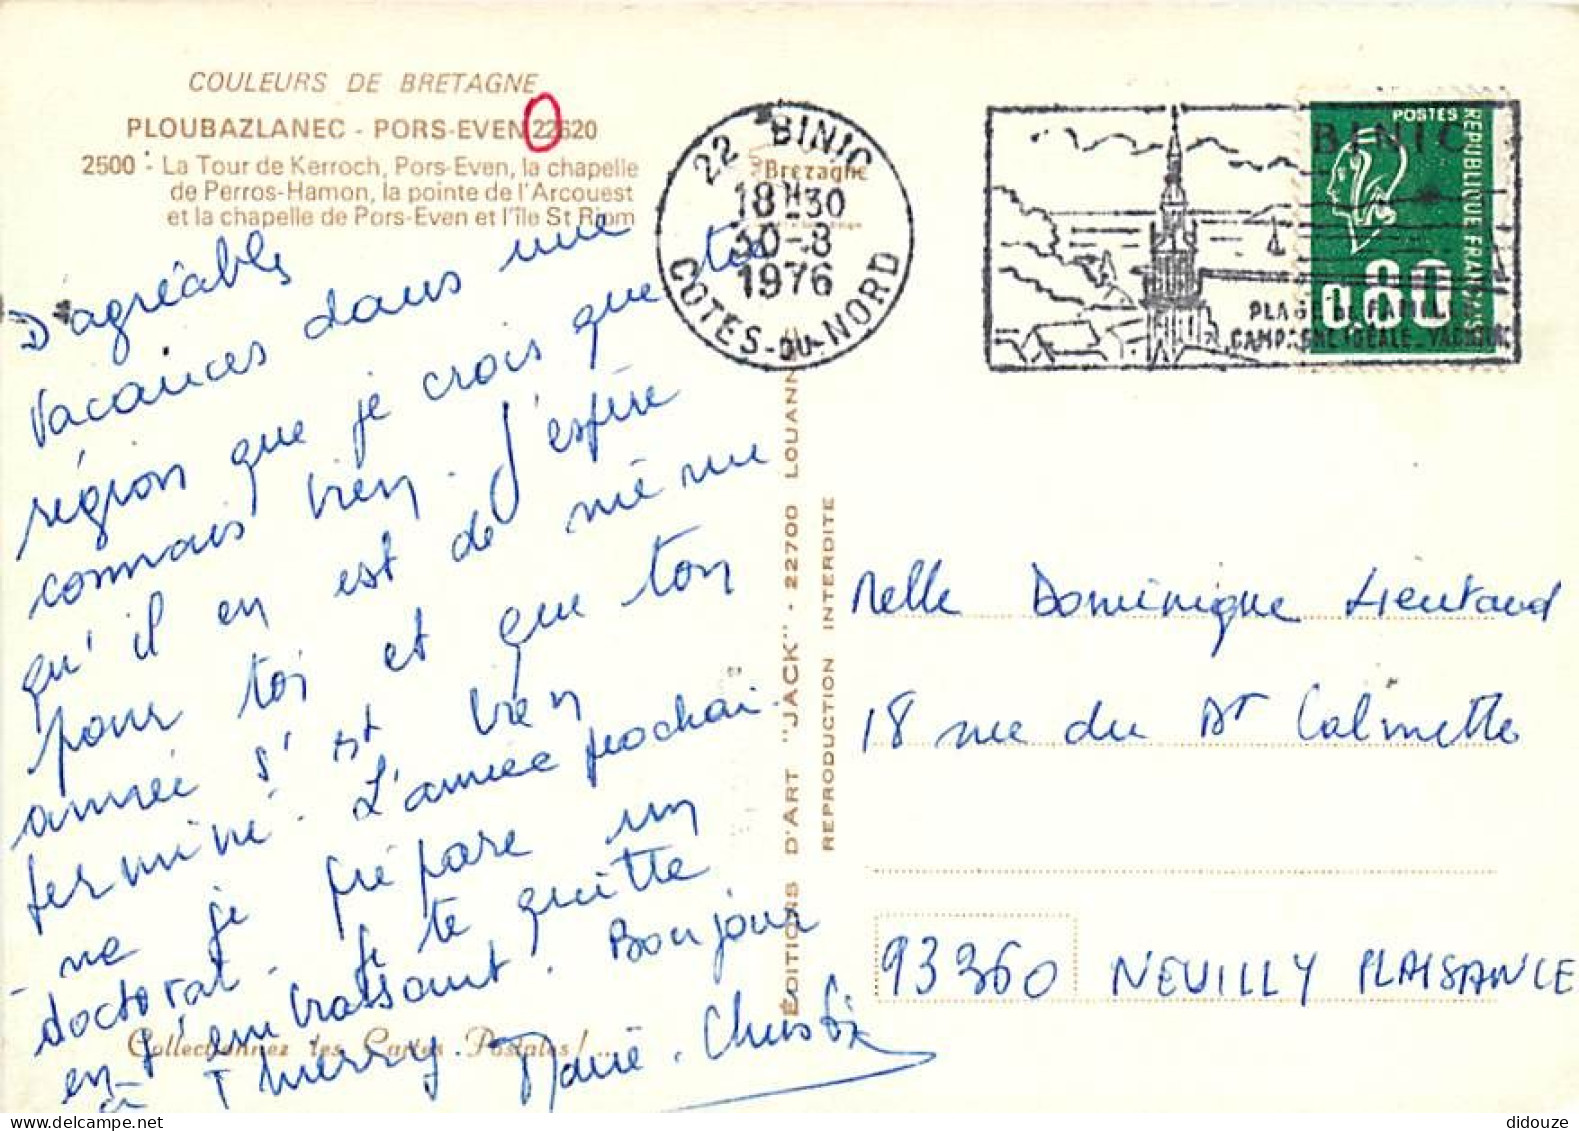 COULEURS DE BRETAGNE
PLOUBAZLANEC - PORS-EVEN 22620
2500 - La Tour de Kerroch, Pors-Even, la chapelle
de Perros-Hamon, la pointe de l'Arcouest
et la chapelle de Pors-Even et l'île St Riom
D'agréables
vacances dans une
région que je crois que tu
connais bien. J'espère
qu'il en est de même
pour toi et que ton
année s'est bien
terminé. L'année prochai-
-ne je prépare un
doctorat. Je te quitte
en t'embrassant. Bonjour
à Thierry. Marie-Christine
Collectionnez les Cartes Postales !...
22 BINIC
18H30
30-8
1976
COTES-DU-NORD
Bretagne
BINIC
PLAGE DE FAMILLES
CAMPAGNE IDEALE
POSTES
REPUBLIQUE FRANÇAISE
0.80
ÉDITIONS D'ART "JACK" - 22700 LOUANN
REPRODUCTION INTERDITE
Melle Dominique Lieutaud
18 rue du Dr Calmette
93360 NEUILLY PLAISANCE
didouze